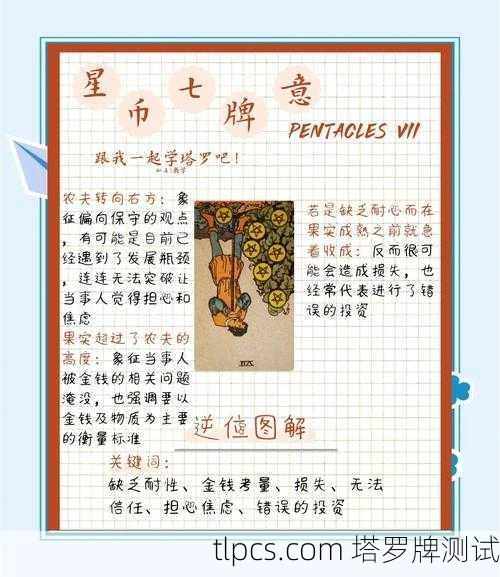 星币七牌意
PENTACLES VII
跟我一起学塔罗吧！
农夫转向右方：象
征偏向保守的观点
，有可能是目前已
经遇到了发展瓶颈
，连连无法突破让
当事人觉得担心和
焦虑
果实超过了农夫的
高度：象征当事人
被金钱的相关问题
淹没，也强调要以
金钱及物质为主要
的衡量标准
VII
若是缺乏耐心而在
果实成熟之前就急
着收成：反而很可
能会造成损失，也
经常代表进行了错
误的投资
逆位图解
关键词：
缺乏耐性、金钱考量、损失、无法
信任、担心焦虑、错误的投资
tlpcs.com 塔罗牌测试